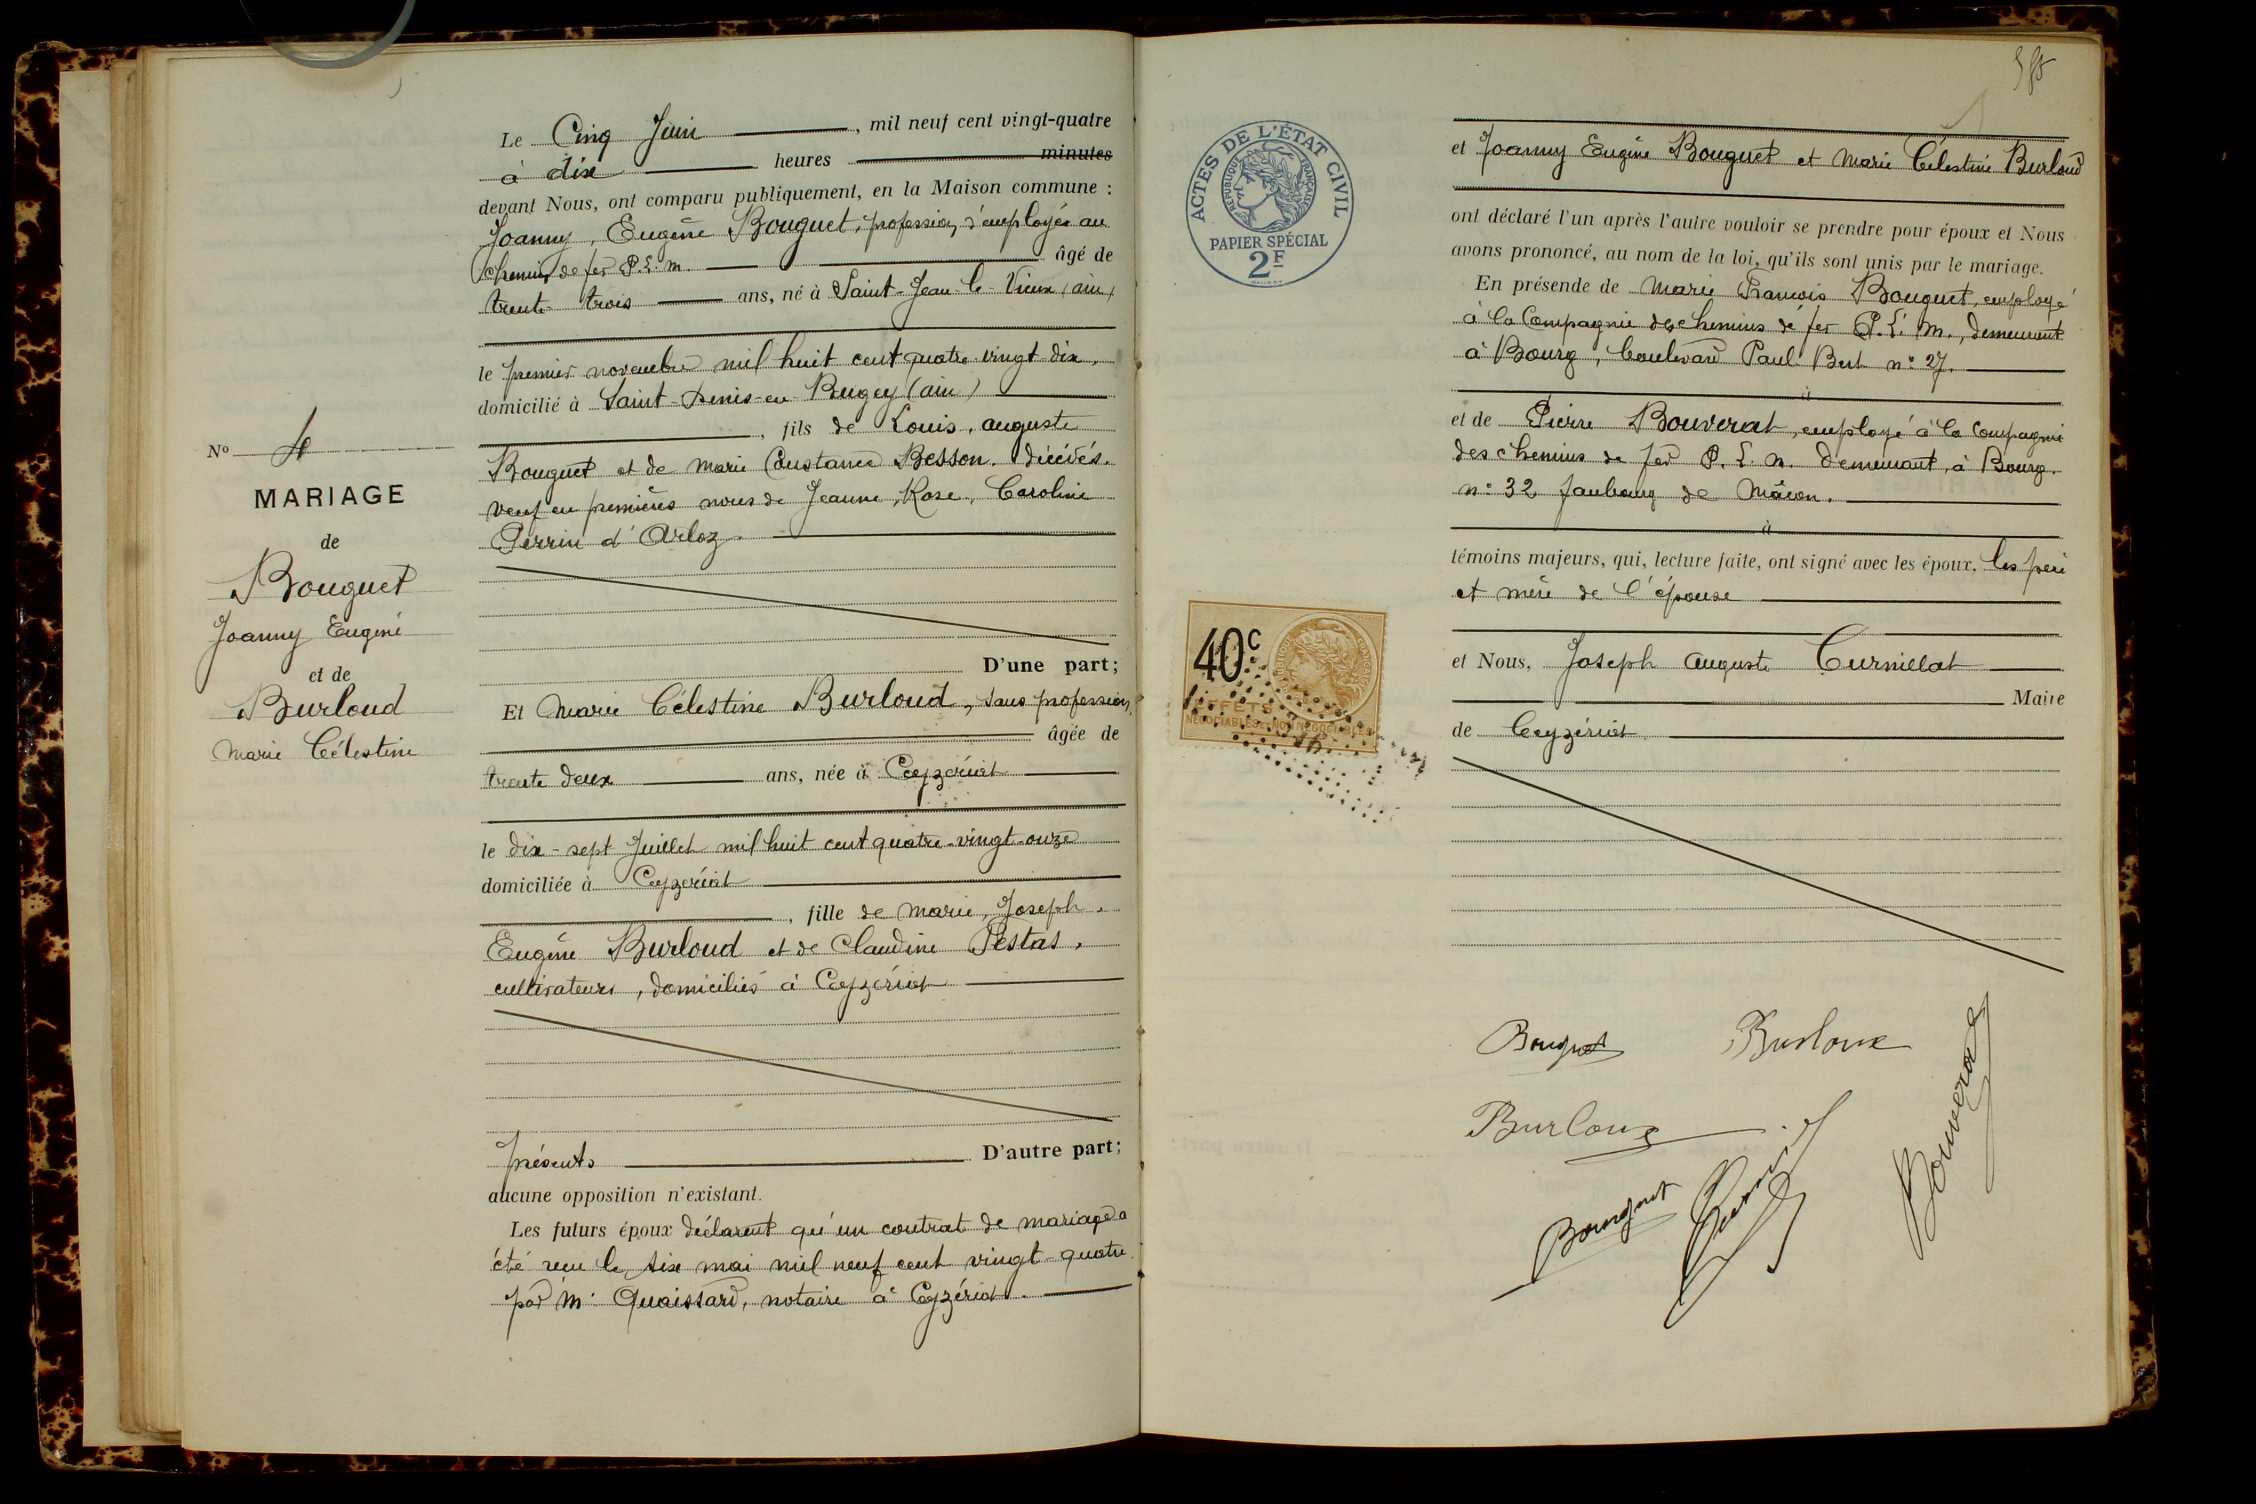 Le Cinq Juin, mil neuf cent vingt-quatre
à dix heures minutes
devant Nous, ont comparu publiquement, en la Maison commune :
Joanny, Eugène Bouguet, profession d'employé au
chemin de fer P.L.M. âgé de
trente-trois ans, né à Saint-Jean-le-Vieux (ain)
le premier novembre mil huit cent quatre-vingt-dix,
domicilié à Saint-Denis-en-Bugey (ain)
, fils de Louis, auguste
Bouguet et de Marie Constance Besson. décédés.
veuf en premières noces de Jeanne, Rose, Caroline
Perrin d'Arloz.
D'une part;
Nº 4
MARIAGE
de
Bouguet
Joanny Eugène
et de
Burloud
Marie Célestine
Et Marie Célestine Burloud, sans profession,
âgée de
trente deux ans, née à Ceyzériat
le dix-sept Juillet mil huit cent quatre-vingt-onze
domiciliée à Ceyzériat
, fille de Marie, Joseph,
Eugène Burloud et de Claudine Pestas,
cultivateurs, domiciliés à Ceyzériat
présents D'autre part;
aucune opposition n'existant.
Les futurs époux déclarent qu'un contrat de mariage a
été reçu le six mai mil neuf cent vingt-quatre
par Mᵉ Quaissard, notaire à Ceyzériat.
ACTES DE L'ÉTAT CIVIL
RÉPUBLIQUE FRANÇAISE
PAPIER SPÉCIAL
2F
40c
EFFETS
NÉGOCIABLES OU NON NÉGOCIABLES
et Joanny Eugène Bouguet et Marie Célestine Burloud
ont déclaré l'un après l'autre vouloir se prendre pour époux et Nous
avons prononcé, au nom de la loi, qu'ils sont unis par le mariage.
En présende de Marie François Bouguet, employé
à la Compagnie des chemins de fer P.L.M., demeurant
à Bourg, boulevard Paul Bert nº 27.
à
et de Pierre Bouverat, employé à la Compagnie
des chemins de fer P.L.M. demeurant, à Bourg.
nº 32 faubourg de Mâcon.
à
témoins majeurs, qui, lecture faite, ont signé avec les époux, les père
et mère de l'épouse
et Nous, Joseph auguste Curnillat
Maire
de Ceyzériat
Bouguet
Burloud
Burloud
Bouguet
Bouverat